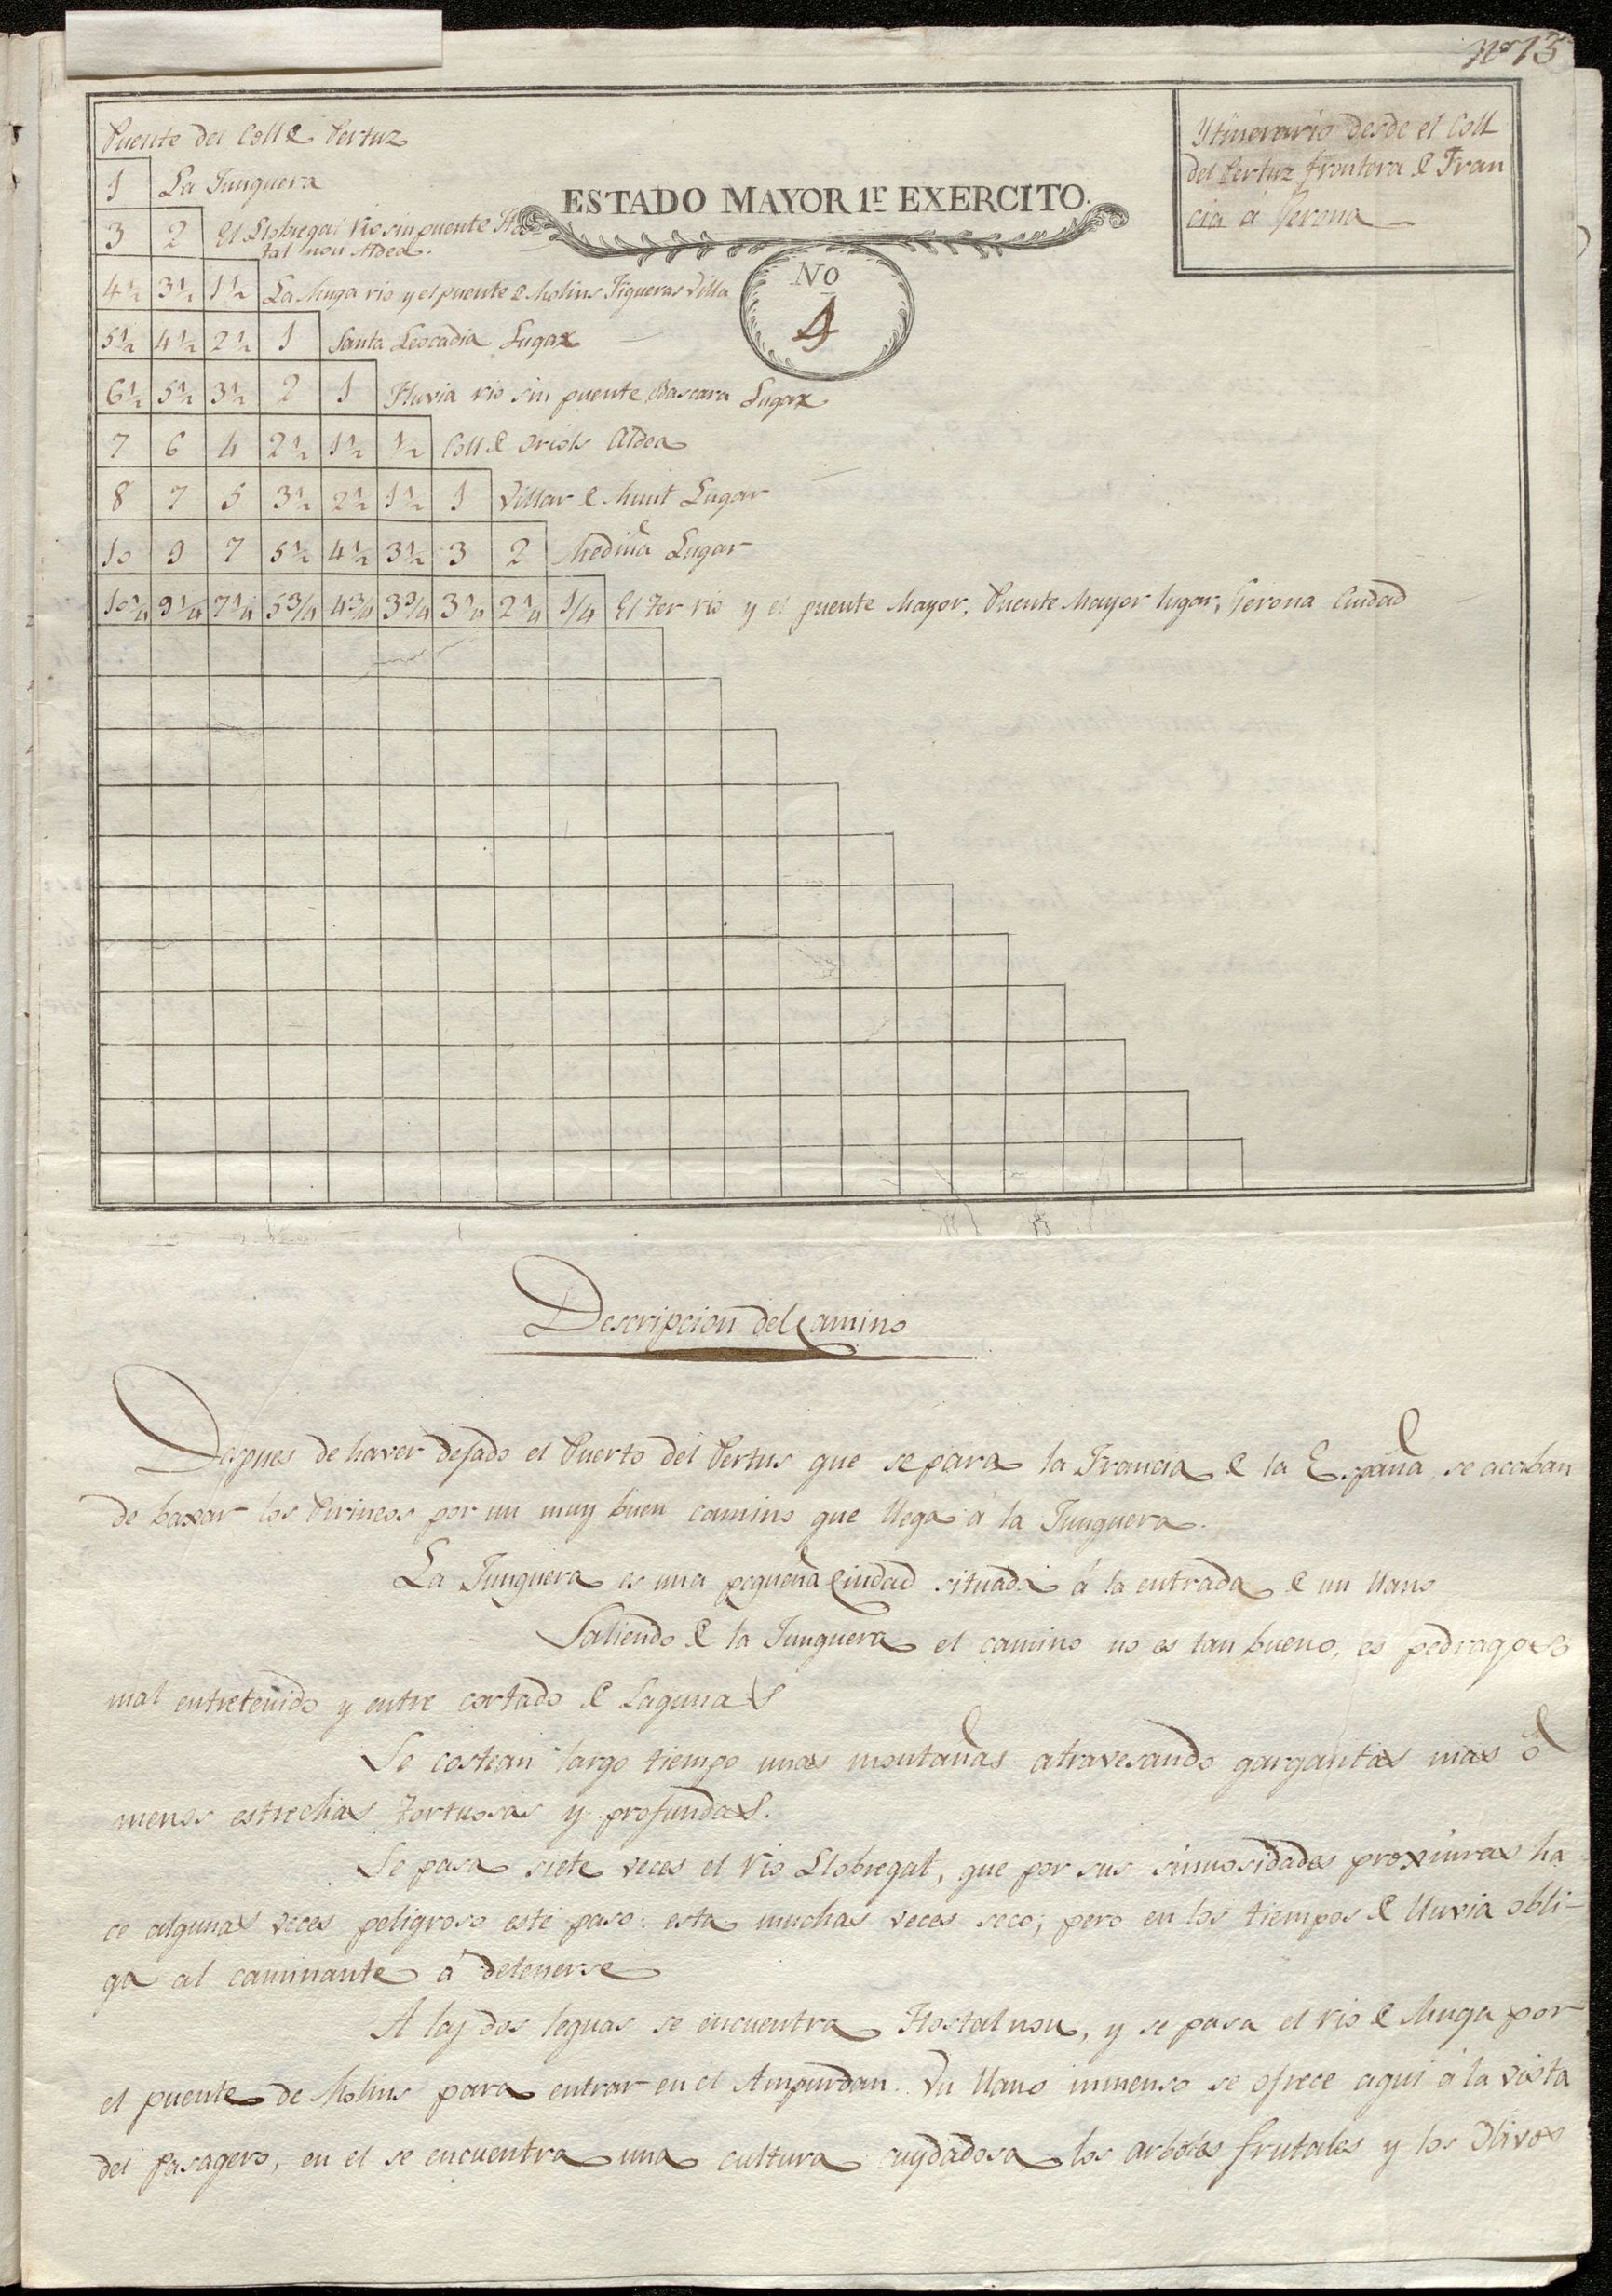 Nº 13
Ytinerario desde el Coll
del Pertuz frontera de Fran
cia á Gerona
ESTADO MAYOR 1r. EXERCITO.
No
4
Puente del Coll de Pertuz
1 La Junquera
3 2 El Llobregat rio sin puente Hos
tal nou Aldea.
4½ 3½ 1½ La Muga rio y el puente de Molins Figueras Villa
5½ 4½ 2½ 1 Santa Leocadia Lugar
6½ 5½ 3½ 2 1 Fluvia rio sin puente, Bascara Lugar
7 6 4 2½ 1½ ½ Coll de Oriols Aldea
8 7 5 3½ 2½ 1½ 1 Villar de Munt Lugar
10 9 7 5½ 4½ 3½ 3 2 Mediñá Lugar
10¼ 9¼ 7¼ 5¾ 4¾ 3¾ 3¼ 2¼ 1/4 El Ter rio y el puente Mayor, Puente Mayor lugar, Gerona Ciudad
Descripcion del Camino
Despues de haver dejado el Puerto del Pertus que separa la Francia de la España, se acaban
de baxar los Pirineos por un muy buen camino que llega á la Junquera.
La Junquera es una pequeña Ciudad situada á la entrada de un llano
Saliendo de la Junquera el camino no es tan bueno, es pedragoso
mal entretenido y entre cortado de Lagunas
Se costean largo tiempo unas montañas atravesando gargantas mas ó
menos estrechas tortuosas y profundas.
Se pasa siete veces el rio Llobregat, que por sus sinuosidades proximas ha
ce algunas veces peligroso este paso: esta muchas veces seco; pero en los tiempos de lluvia obli-
ga al caminante á detenerse
A las dos leguas se encuentra Hostalnou, y se pasa el rio de Muga por
el puente de Molins para entrar en el Ampurdan. Un llano inmenso se ofrece aqui á la vista
del pasagero, en el se encuentra una cultura cuydadosa los arboles frutales y los Olivos